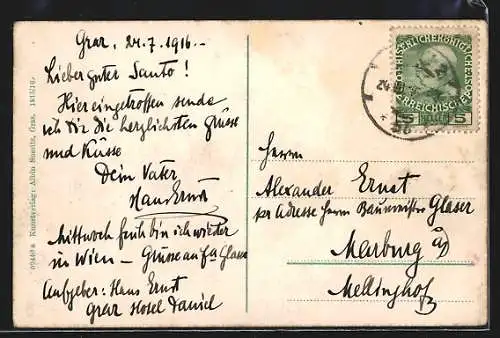 Graz, 24.7.1916.-
Lieber guter Santo!
Hier eingetroffen sende
ich Dir die herzlichsten Grüsse
und Küsse
Dein Vater
Hans Ernst
Mittwoch früh bin ich wieder
in Wien – Grüsse an Fa Glaser
Aufgeber: Hans Ernst
Graz Hotel Daniel
Herrn
Alexander Ernst
per Adresse Herrn Baumeister Glaser
Marburg a/D
Mellinghof
Kunstverlag: Albin Sussitz, Graz. 1915/16.
5 5